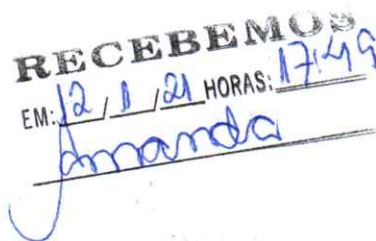 RECEBEMOS
EM: 12 / 1 / 21 HORAS: 17:49
Amanda